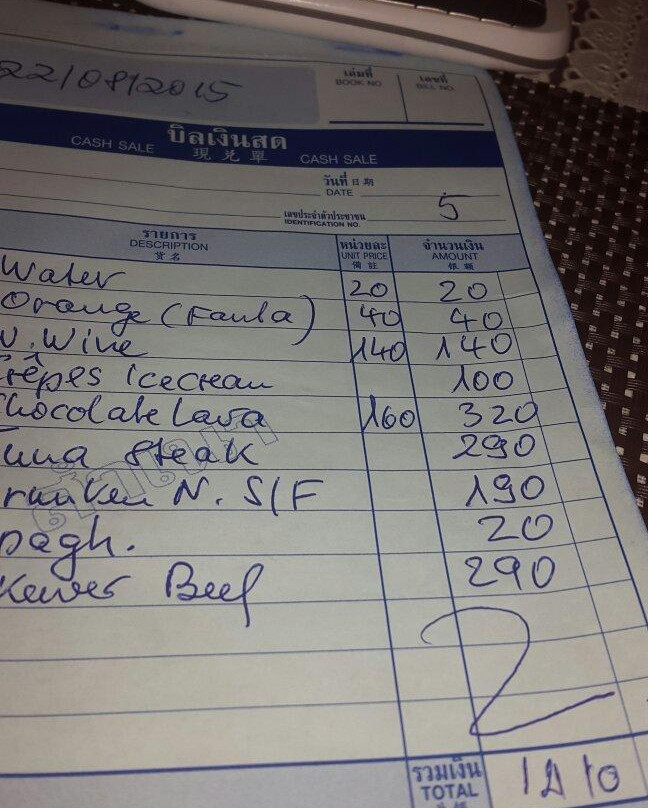 22/08/2015
เล่มที่ เลขที่
BOOK NO. BILL NO.
บิลเงินสด
CASH SALE 現兌單 CASH SALE
วันที่ 日期
DATE
เลขประจำตัวประชาชน 5
IDENTIFICATION NO.
รายการ หน่วยละ จำนวนเงิน
DESCRIPTION UNIT PRICE AMOUNT
貨名 備註 銀額
Water 20 20
Orange (Fanta) 40 40
W. Wine 140 140
Crêpes Icecream 100
Chocolate Lava 160 320
Tuna Steak 290
runken N. S/F 190
pagh. 20
Skewer Beef 290
สำเนา
รวมเงิน
TOTAL 1410